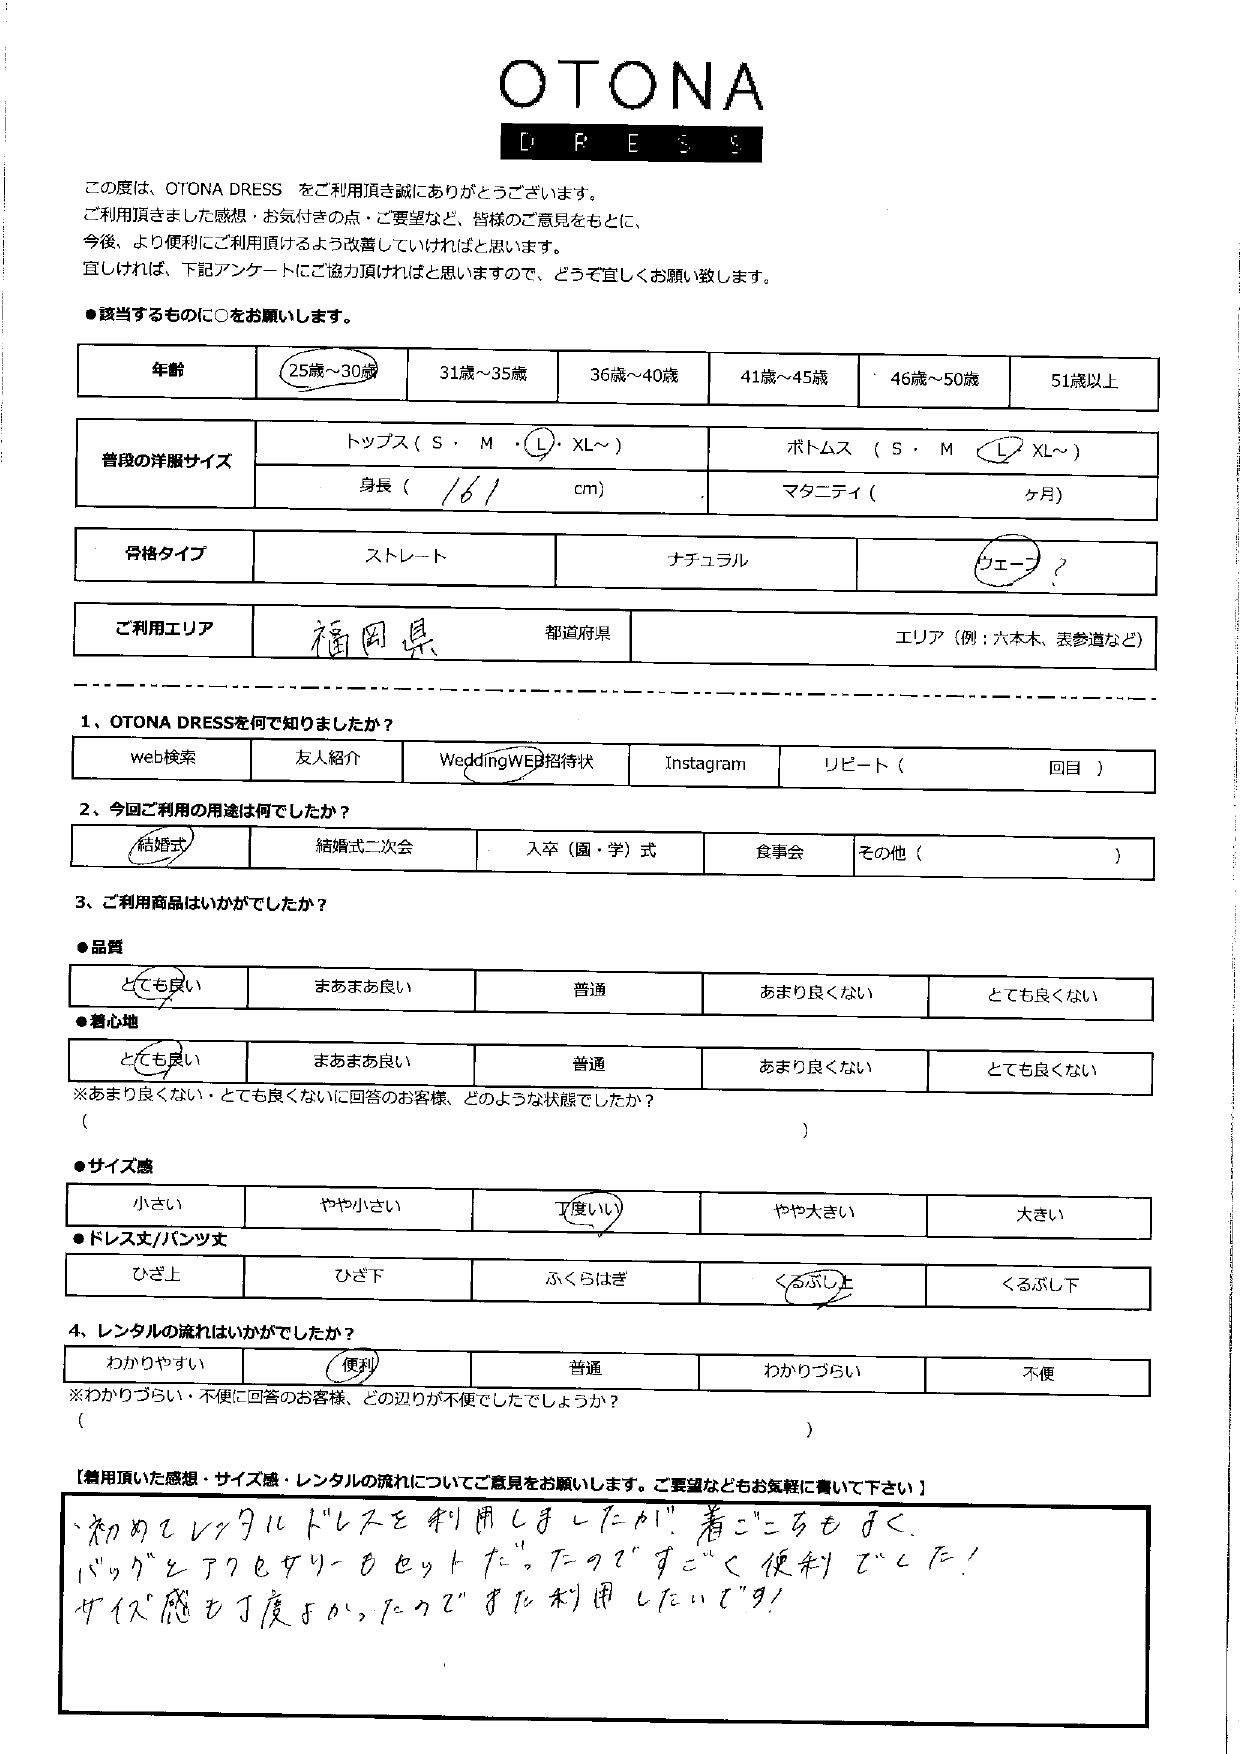 OTONA
DRESS
この度は、OTONA DRESS　をご利用頂き誠にありがとうございます。
ご利用頂きました感想・お気付きの点・ご要望など、皆様のご意見をもとに、
今後、より便利にご利用頂けるよう改善していければと思います。
宜しければ、下記アンケートにご協力頂ければと思いますので、どうぞ宜しくお願い致します。
●該当するものに○をお願いします。
年齢 25歳～30歳 31歳～35歳 36歳～40歳 41歳～45歳 46歳～50歳 51歳以上
普段の洋服サイズ トップス ( S ・ M ・ L ・ XL～ ) ボトムス ( S ・ M L ・ XL～ )
身長 ( 161 cm) マタニティ ( ヶ月)
骨格タイプ ストレート ナチュラル ウェーブ ?
ご利用エリア 福岡県 都道府県 エリア（例：六本木、表参道など）
1、OTONA DRESSを何で知りましたか？
web検索 友人紹介 WeddingWEB招待状 Instagram リピート ( 回目 )
2、今回ご利用の用途は何でしたか？
結婚式 結婚式二次会 入卒（園・学）式 食事会 その他 ( )
3、ご利用商品はいかがでしたか？
●品質
とても良い まあまあ良い 普通 あまり良くない とても良くない
●着心地
とても良い まあまあ良い 普通 あまり良くない とても良くない
※あまり良くない・とても良くないに回答のお客様、どのような状態でしたか？
( )
●サイズ感
小さい やや小さい 丁度いい やや大きい 大きい
●ドレス丈/パンツ丈
ひざ上 ひざ下 ふくらはぎ くるぶし上 くるぶし下
4、レンタルの流れはいかがでしたか？
わかりやすい 便利 普通 わかりづらい 不便
※わかりづらい・不便に回答のお客様、どの辺りが不便でしたでしょうか？
( )
【着用頂いた感想・サイズ感・レンタルの流れについてご意見をお願いします。ご要望などもお気軽に書いて下さい】
・初めてレンタルドレスを利用しましたが、着ごこちもよく、
バッグとアクセサリーもセットだったのですごく便利でした!
サイズ感も丁度よかったのでまた利用したいです!